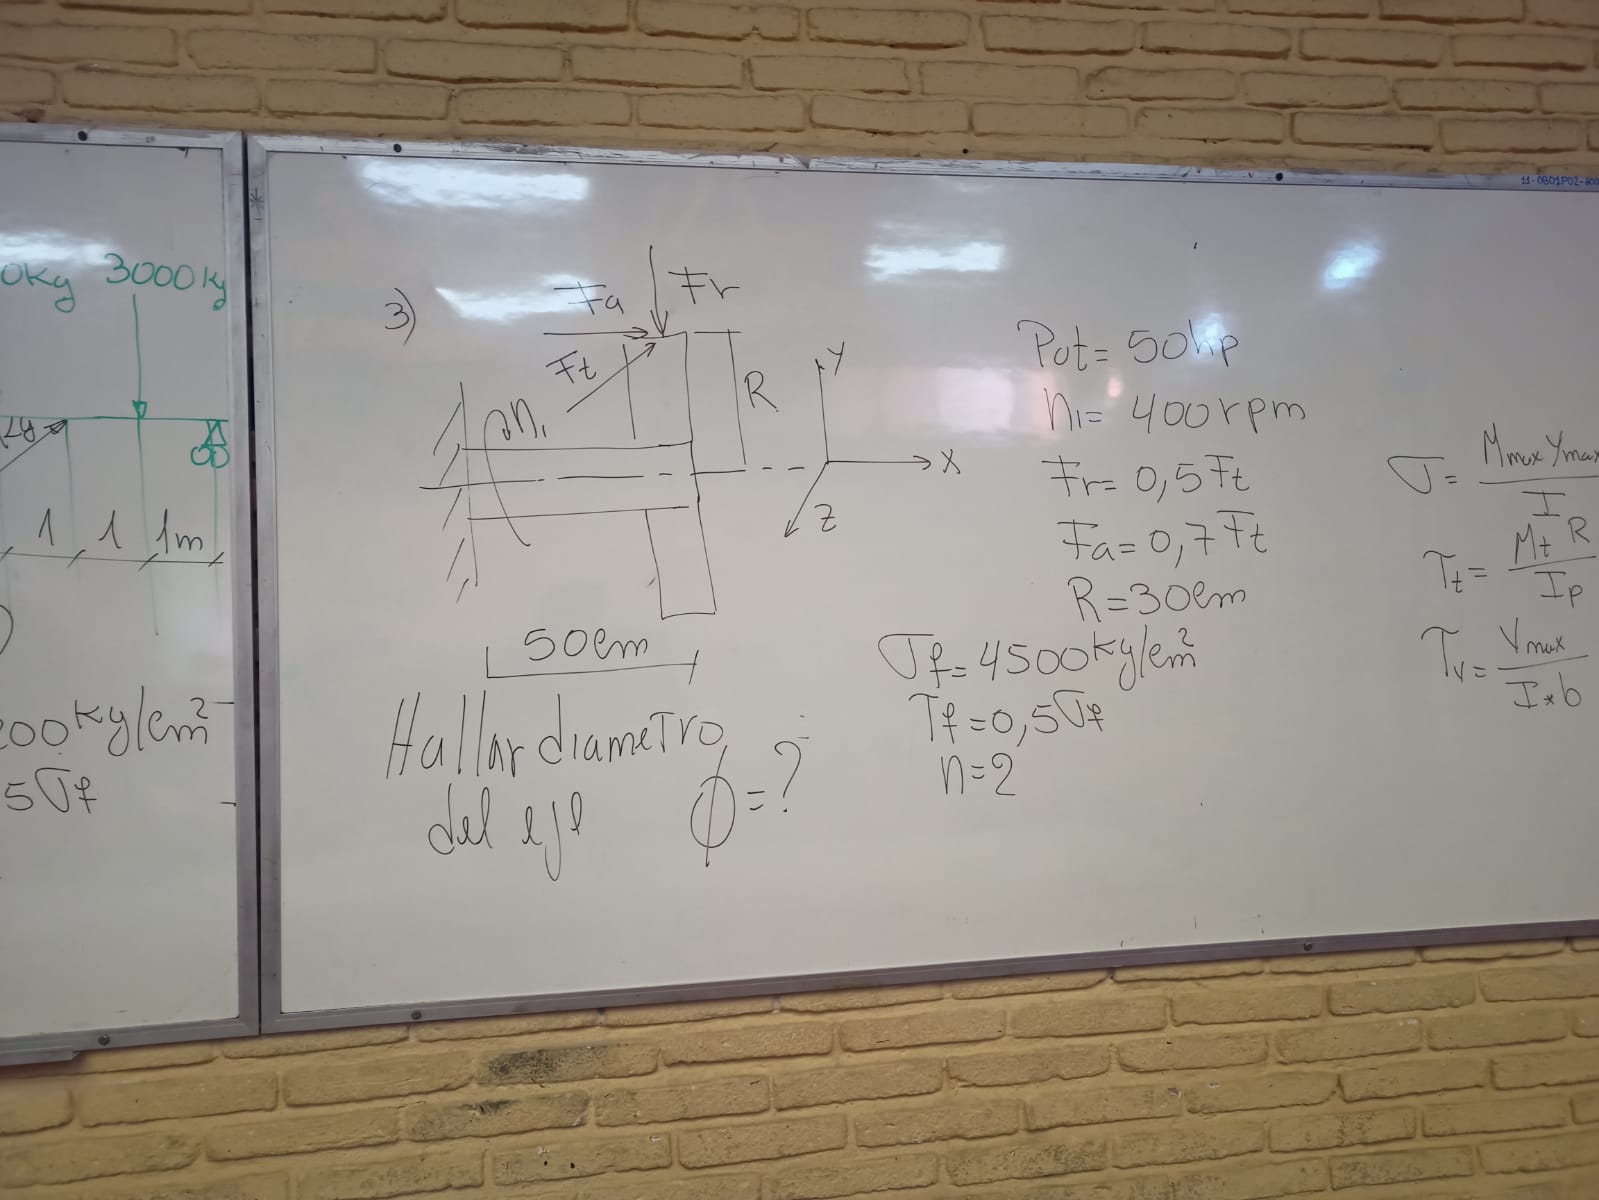 3000kg
1 1 1m
3)
Fa
Fr
Ft
n₁
R
Y
X
Z
50cm
Hallar diametro
del eje ϕ=?
Pot= 50hp
n₁= 400rpm
Fr= 0,5Ft
Fa= 0,7Ft
R=30cm
σf= 4500kg/cm²
τf=0,5σf
n=2
σ= Mmax Ymax
I
τt= Mt R
Ip
τv= Vmax
I*b
kg/cm²
5σf